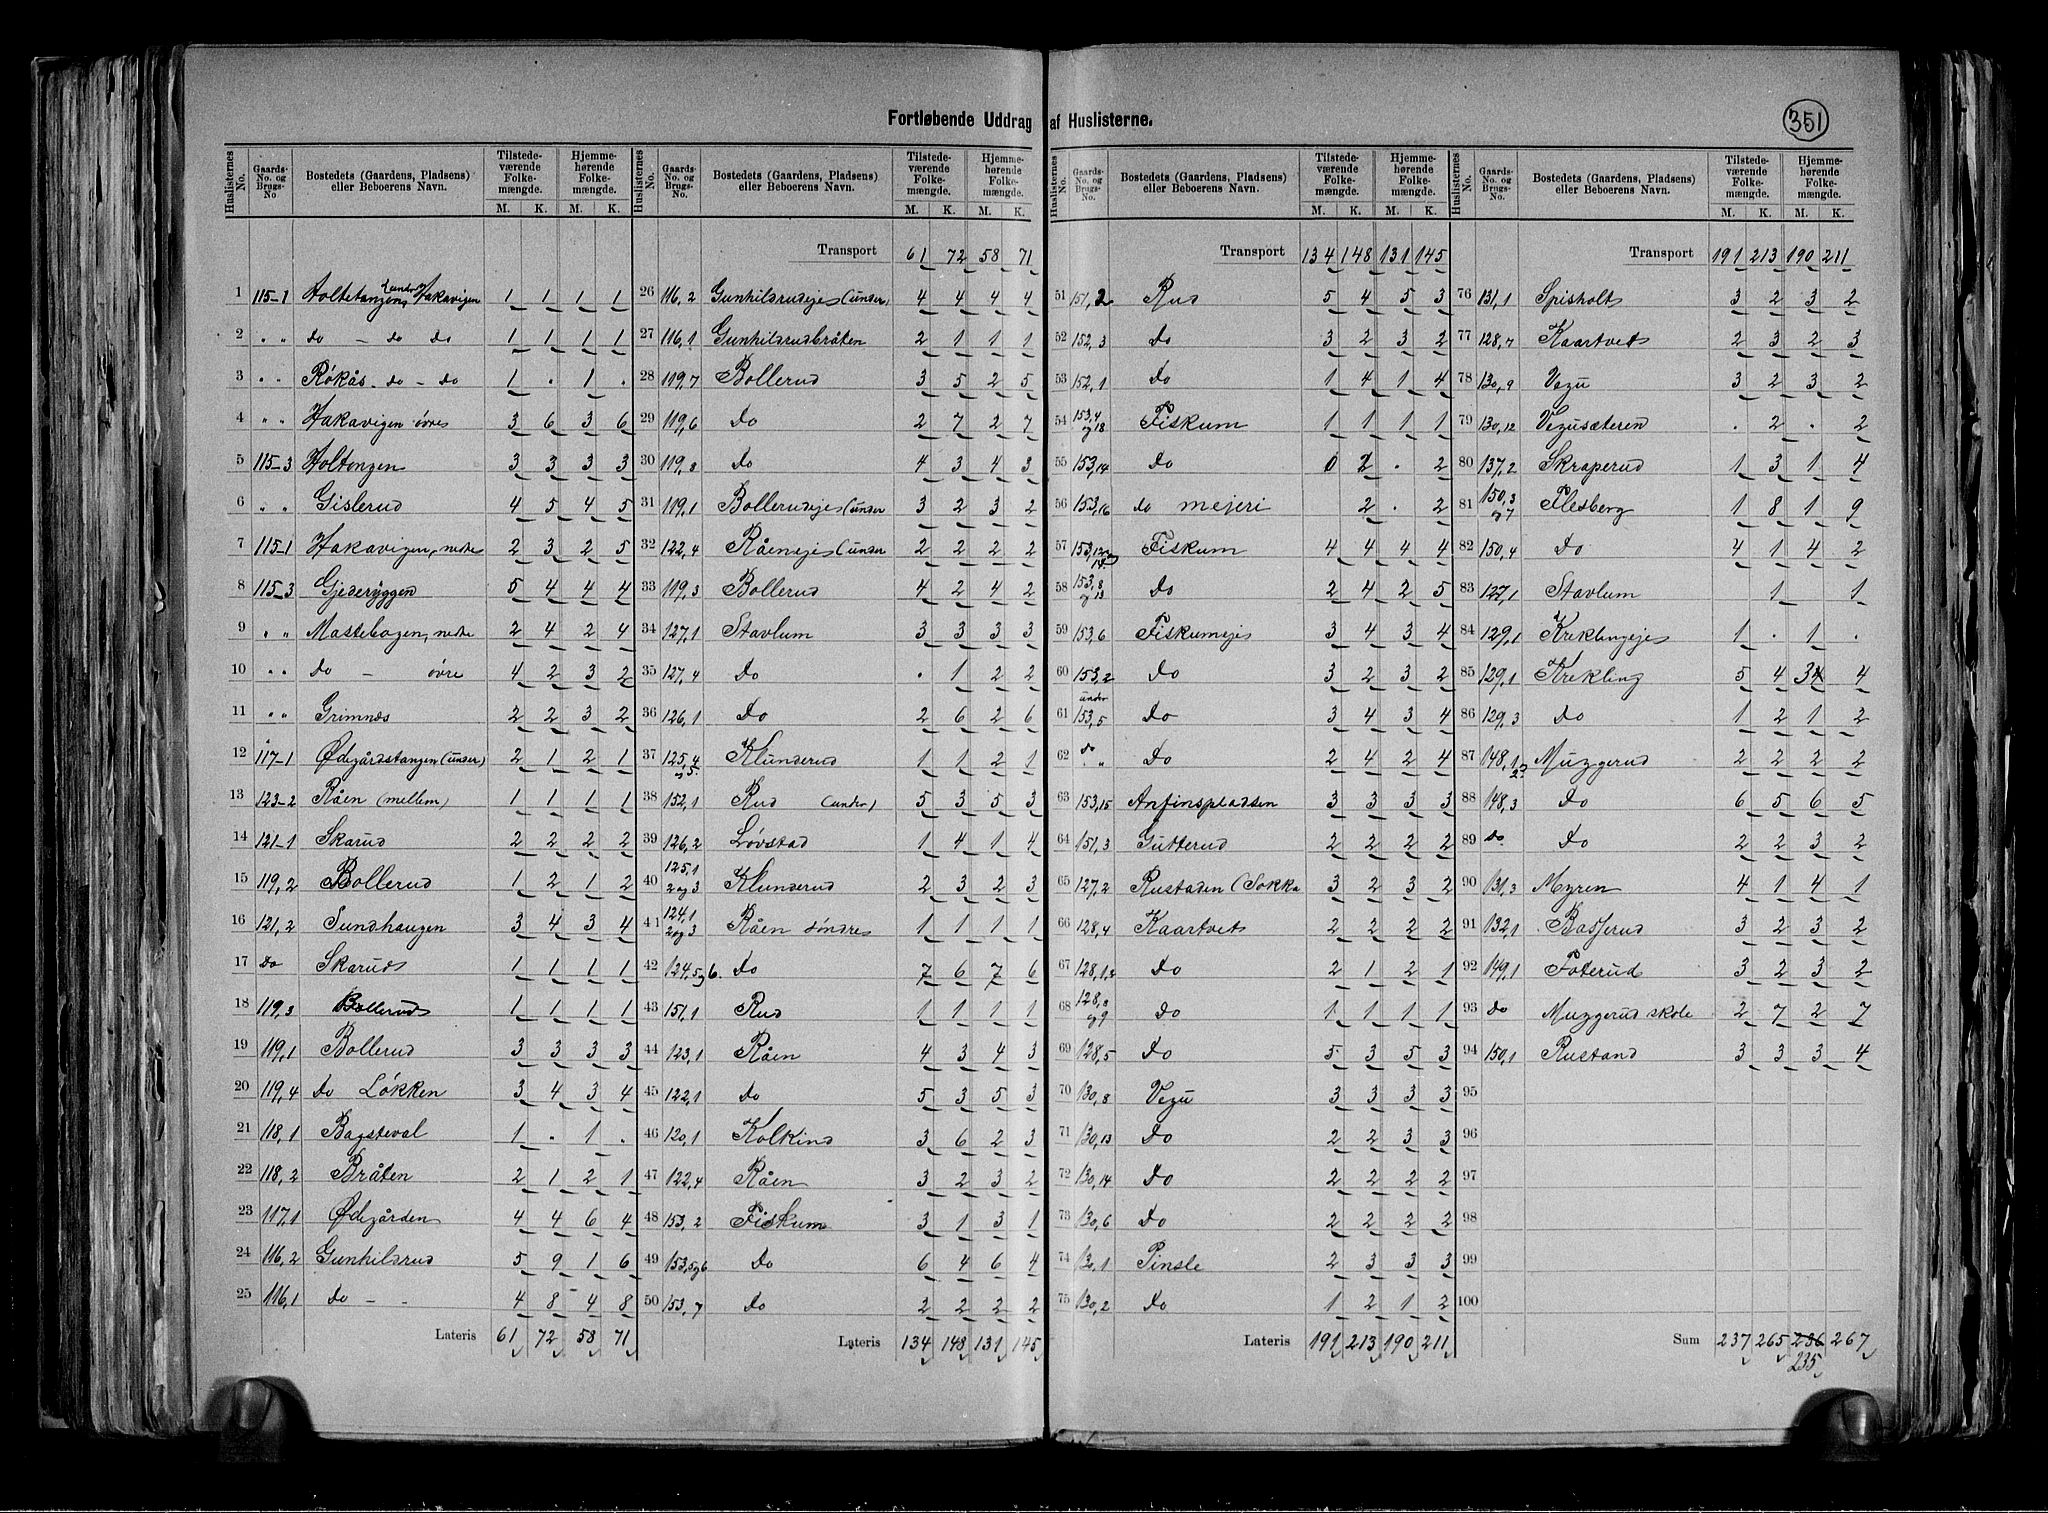 Fortløbende Uddrag af Huslisterne.
351
Huslisternes No. Gaards-No. og Brugs-No Bostedets (Gaardens, Pladsens) eller Beboerens Navn. Tilstedeværende Folkemængde. M. K. Hjemmehørende Folkemængde. M. K.
1 115-1 Holtetangen (under Hakavigen 1 1 1 1
2 " " do - do do 1 1 1 1
3 " " Røkås - do - do 1 . 1 .
4 " " Hakavigen øvre 3 6 3 6
5 115-3 Holtongen 3 3 3 3
6 " " Gislerud 4 5 4 5
7 115-1 Hakavigen, nedre 2 3 2 5
8 115-3 Gjederyggen 5 4 4 4
9 " " Mastebogen, nedre 2 4 2 4
10 " " do - øvre 4 2 3 2
11 " " Grimnes 2 2 3 2
12 117-1 Ødegårdstangen (under) 2 1 2 1
13 123-2 Råen (mellem) 1 1 1 1
14 121-1 Skarud 2 2 2 2
15 119,2 Bollerud 1 2 1 2
16 121,2 Sundhaugen 3 4 3 4
17 do Skaruds 1 1 1 1
18 119,3 Bolleruds 1 1 1 1
19 119,1 Bollerud 3 3 3 3
20 119,4 do Løkken 3 4 3 4
21 118,1 Bagsteval 1 . 1 .
22 118,2 Bråten 2 1 2 1
23 117,1 Ødegården 4 4 6 4
24 116,2 Gunhildsrud 5 9 1 6
25 116,1 do - - 4 8 4 8
Lateris 61 72 58 71
Huslisternes No. Gaards-No. og Brugs-No. Bostedets (Gaardens, Pladsens) eller Beboerens Navn. Tilstedeværende Folkemængde. M. K. Hjemmehørende Folkemængde. M. K.
Transport 61 72 58 71
26 116,2 Gunhildsrudeje (under) 4 4 4 4
27 116,1 Gunhildsrudbråten 2 1 1 1
28 119,7 Bollerud 3 5 2 5
29 119,6 do 2 7 2 7
30 119,8 do 4 3 4 3
31 119,1 Bollerudeje (under 3 2 3 2
32 122,4 Råeneje (under 2 2 2 2
33 119,3 Bollerud 4 2 4 2
34 127,1 Stavlum 3 3 3 3
35 127,4 Do . 1 2 2
36 126,1 Do 2 6 2 6
37 125,4 og 5. Klunderud 1 1 2 1
38 152,1 Rud (under) 5 3 5 3
39 126,2 Løvstad 1 4 1 4
40 125,1 2 og 3 Klunderud 2 3 2 3
41 124,1 2 og 3 Råen søndre 1 1 1 1
42 124,5 og 6. Do 7 6 7 6
43 151,1 Rud 1 1 1 1
44 123,1 Råen 4 3 4 3
45 122,1 do 5 3 5 3
46 120,1 Kolkind 3 6 2 3
47 122,4 Råen 3 2 3 2
48 153,2 Fiskum 3 1 3 1
49 153,5 og 6 Do 6 4 6 4
50 153,7 Do 2 2 2 2
Lateris 134 148 131 145
Huslisternes No. Gaards-No. og Brugs-No. Bostedets (Gaardens, Pladsens) eller Beboerens Navn. Tilstedeværende Folkemængde. M. K. Hjemmehørende Folkemængde. M. K.
Transport 134 148 131 145
51 151,2 Rud 5 4 5 3
52 152,3 Do 3 2 3 2
53 152,1 Do 1 4 1 4
54 153,4 og 18 Fiskum 1 1 1 1
55 153,14 Do 0 2 . 2
56 153,16 do mejeri 2 . 2
57 153,12 og 14. Fiskum 4 4 4 4
58 153,8 og 13 Do 2 4 2 5
59 153,6 Fiskumseje 3 4 3 4
60 153,2 Do 3 2 3 2
61 under 153,5 Do 3 4 3 4
62 do " " Do 2 4 2 4
63 153,15 Anfinspladsen 3 3 3 3
64 151,3 Gutterud 2 2 2 2
65 127,2 Rustaden (Sokka 3 2 3 2
66 128,4 Kaartvet 2 2 2 2
67 128,1,2 Do 2 1 2 1
68 128,3 og 9 Do 1 1 1 1
69 128,5 Do 5 3 5 3
70 130,8 Vegu 3 3 3 3
71 130,13 Do 2 2 3 3
72 130,14 Do 2 2 2 2
73 130,6 Do 2 2 2 2
74 130,1 Pinsle 2 3 3 3
75 130,2 Do 1 2 1 2
Lateris 191 213 190 211
Huslisternes No. Gaards-No. og Brugs-No. Bostedets (Gaardens, Pladsens) eller Beboerens Navn. Tilstedeværende Folkemængde. M. K. Hjemmehørende Folkemængde. M. K.
Transport 191 213 190 211
76 131,1 Spisholt 3 2 3 2
77 128,7 Kaartvet 2 3 2 3
78 130,9 Vegu 3 2 3 2
79 130,12 Vegusæteren . 2 . 2
80 137,2 Skraperud 1 3 1 4
81 150,3 og 7 Flesberg 1 8 1 9
82 150,4 Do 4 1 4 2
83 127,1 Stavlum 1 1
84 129,1 Kreklingeje 1 . 1 .
85 129,1 Krekling 5 4 34 4
86 129,3 Do 1 2 1 2
87 148,1 og 2 Muggerud 2 2 2 2
88 148,3 Do 6 5 6 5
89 do Do 2 2 3 2
90 131,3 Myren 4 1 4 1
91 132,1 Basserud 3 2 3 2
92 149,1 Foterud 3 2 3 2
93 Do Muggerud skole 2 7 2 7
94 150,1 Rustand 3 3 3 4
95
96
97
98
99
100
Sum 237 265 236 267
235